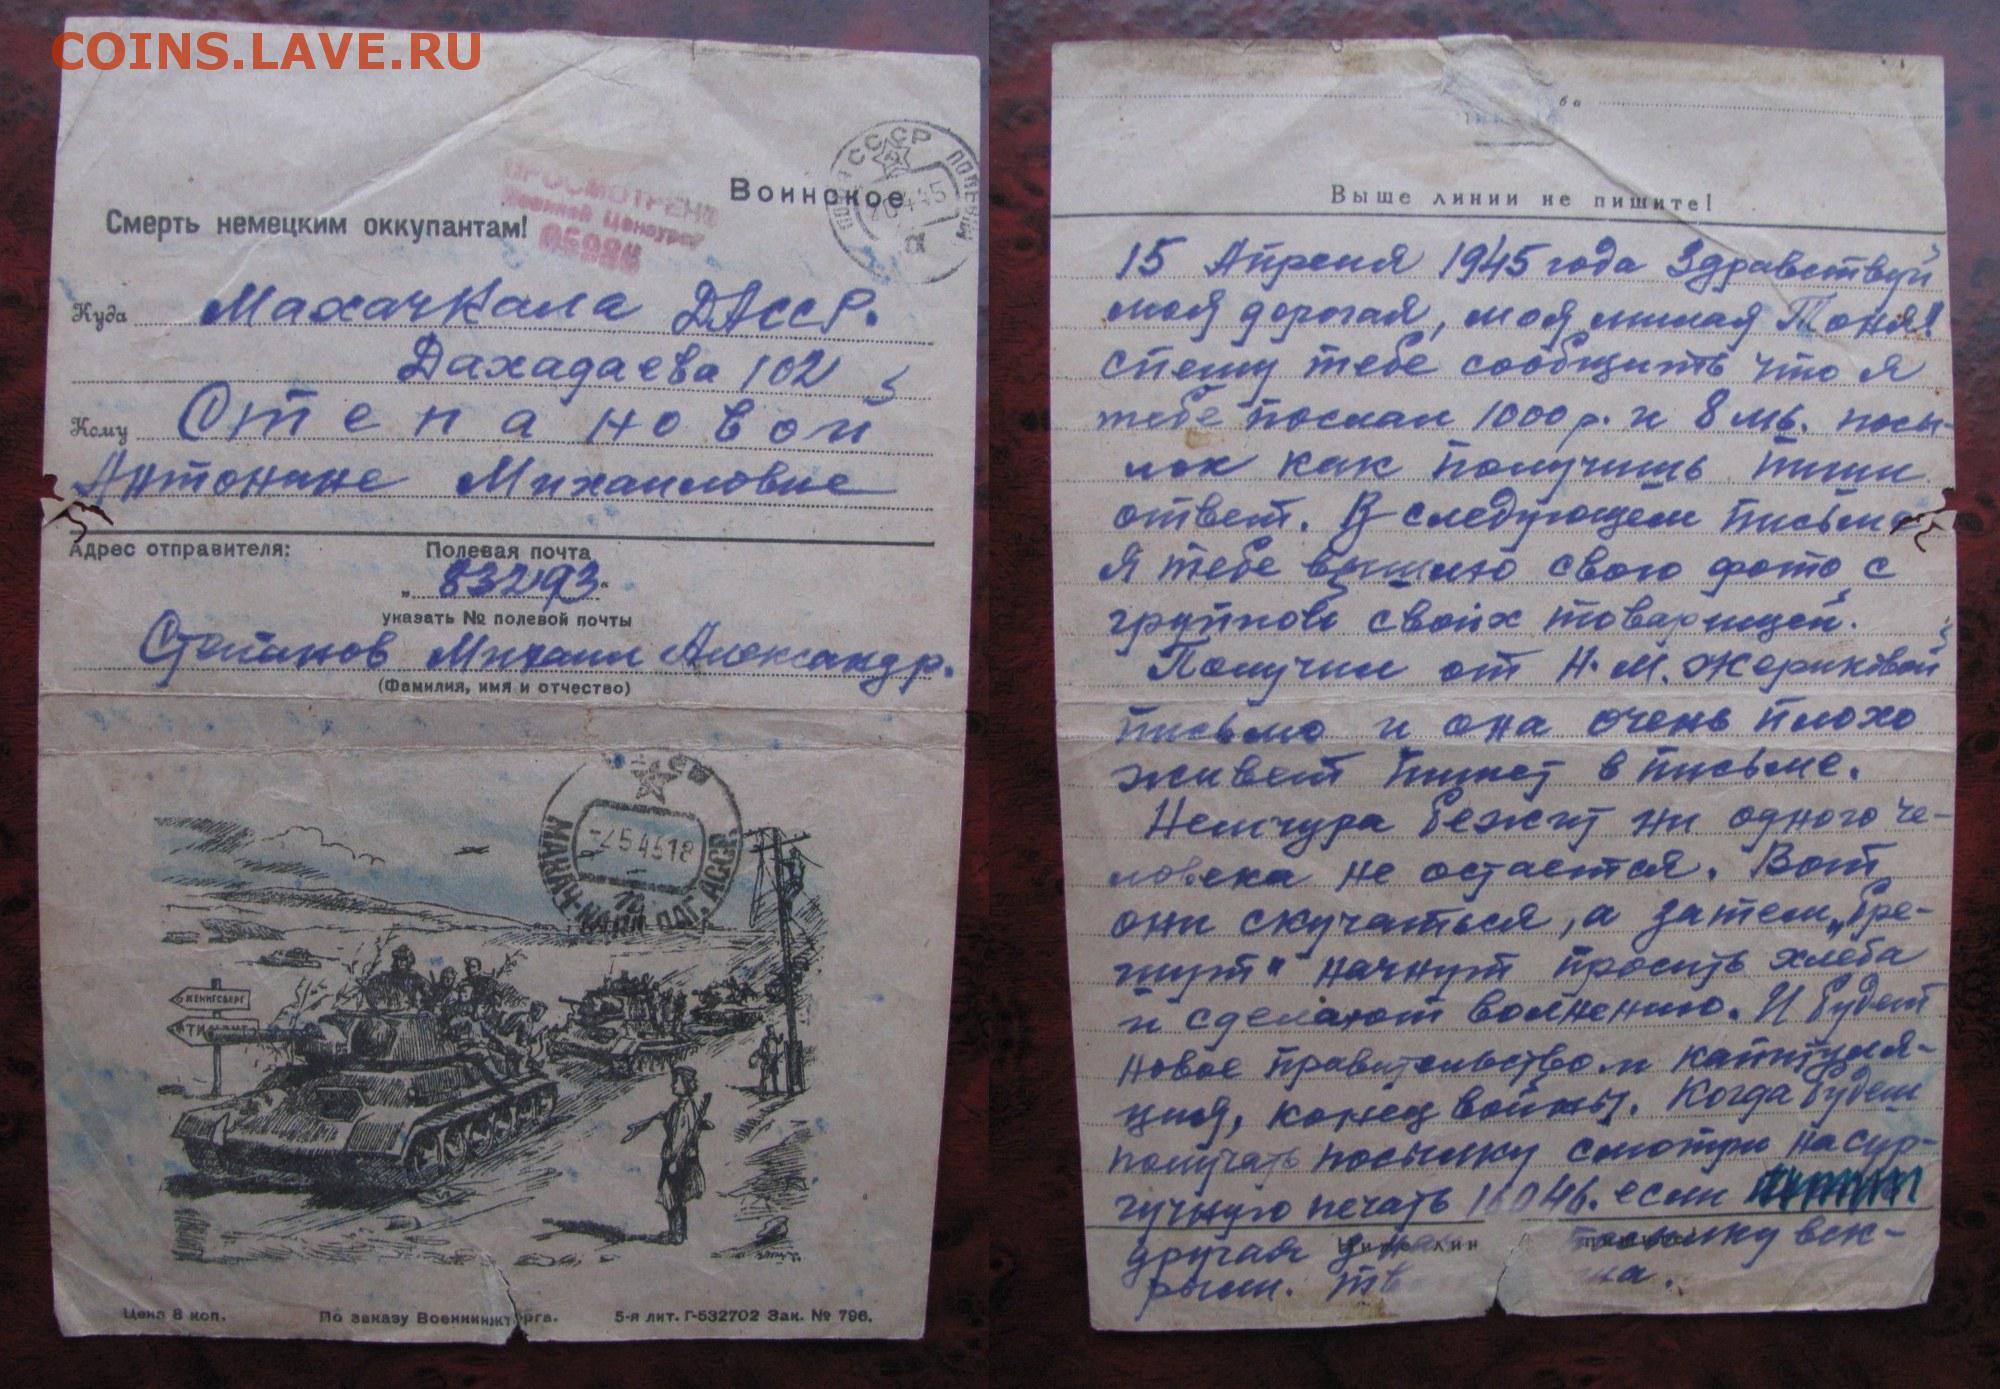 COINS.LAVE.RU
Воинское
Смерть немецким оккупантам!
ПРОСМОТРЕНО
Военной Цензурой
СССР
20.4.45
Куда Махачкала ДАССР.
Дахадаева 102
Кому Степановой
Антонине Михаиловне
Адрес отправителя:
Полевая почта
„83293“
указать № полевой почты
Степанов Михаил Александр.
(Фамилия, имя и отчество)
-2.5.45 18
МАХАЧ-КАЛА ДАГ. АССР.
КЕНИГСБЕРГ
Цена 8 коп. По заказу Военкнижторга. 5-я лит. Г-532702 Зак. № 796.
Выше линии не пишите!
15 Апреля 1945 года Здравствуй
моя дорогая, моя милая Тоня!
спешу тебе сообщить что я
тебе послал 1000 р. и 8 мь. посы-
лок как получишь пиши
ответ. В следующем письме
я тебе вышлю свою фото с
группой своих товарищей.
Получил от Н.М. Жериковой
письмо и она очень плохо
живет пишет в письме.
Немчура бежит ни одного че-
ловека не остается. Вот
они скучаться, а затем „бре-
шут" начнут просить хлеба
и сделают волнению. И будет
новое правительство и капитуля-
ция, конец войны. Когда будеш
получать посылку смотри на сур-
гучную печать если
другая посылку вск-
рыли.